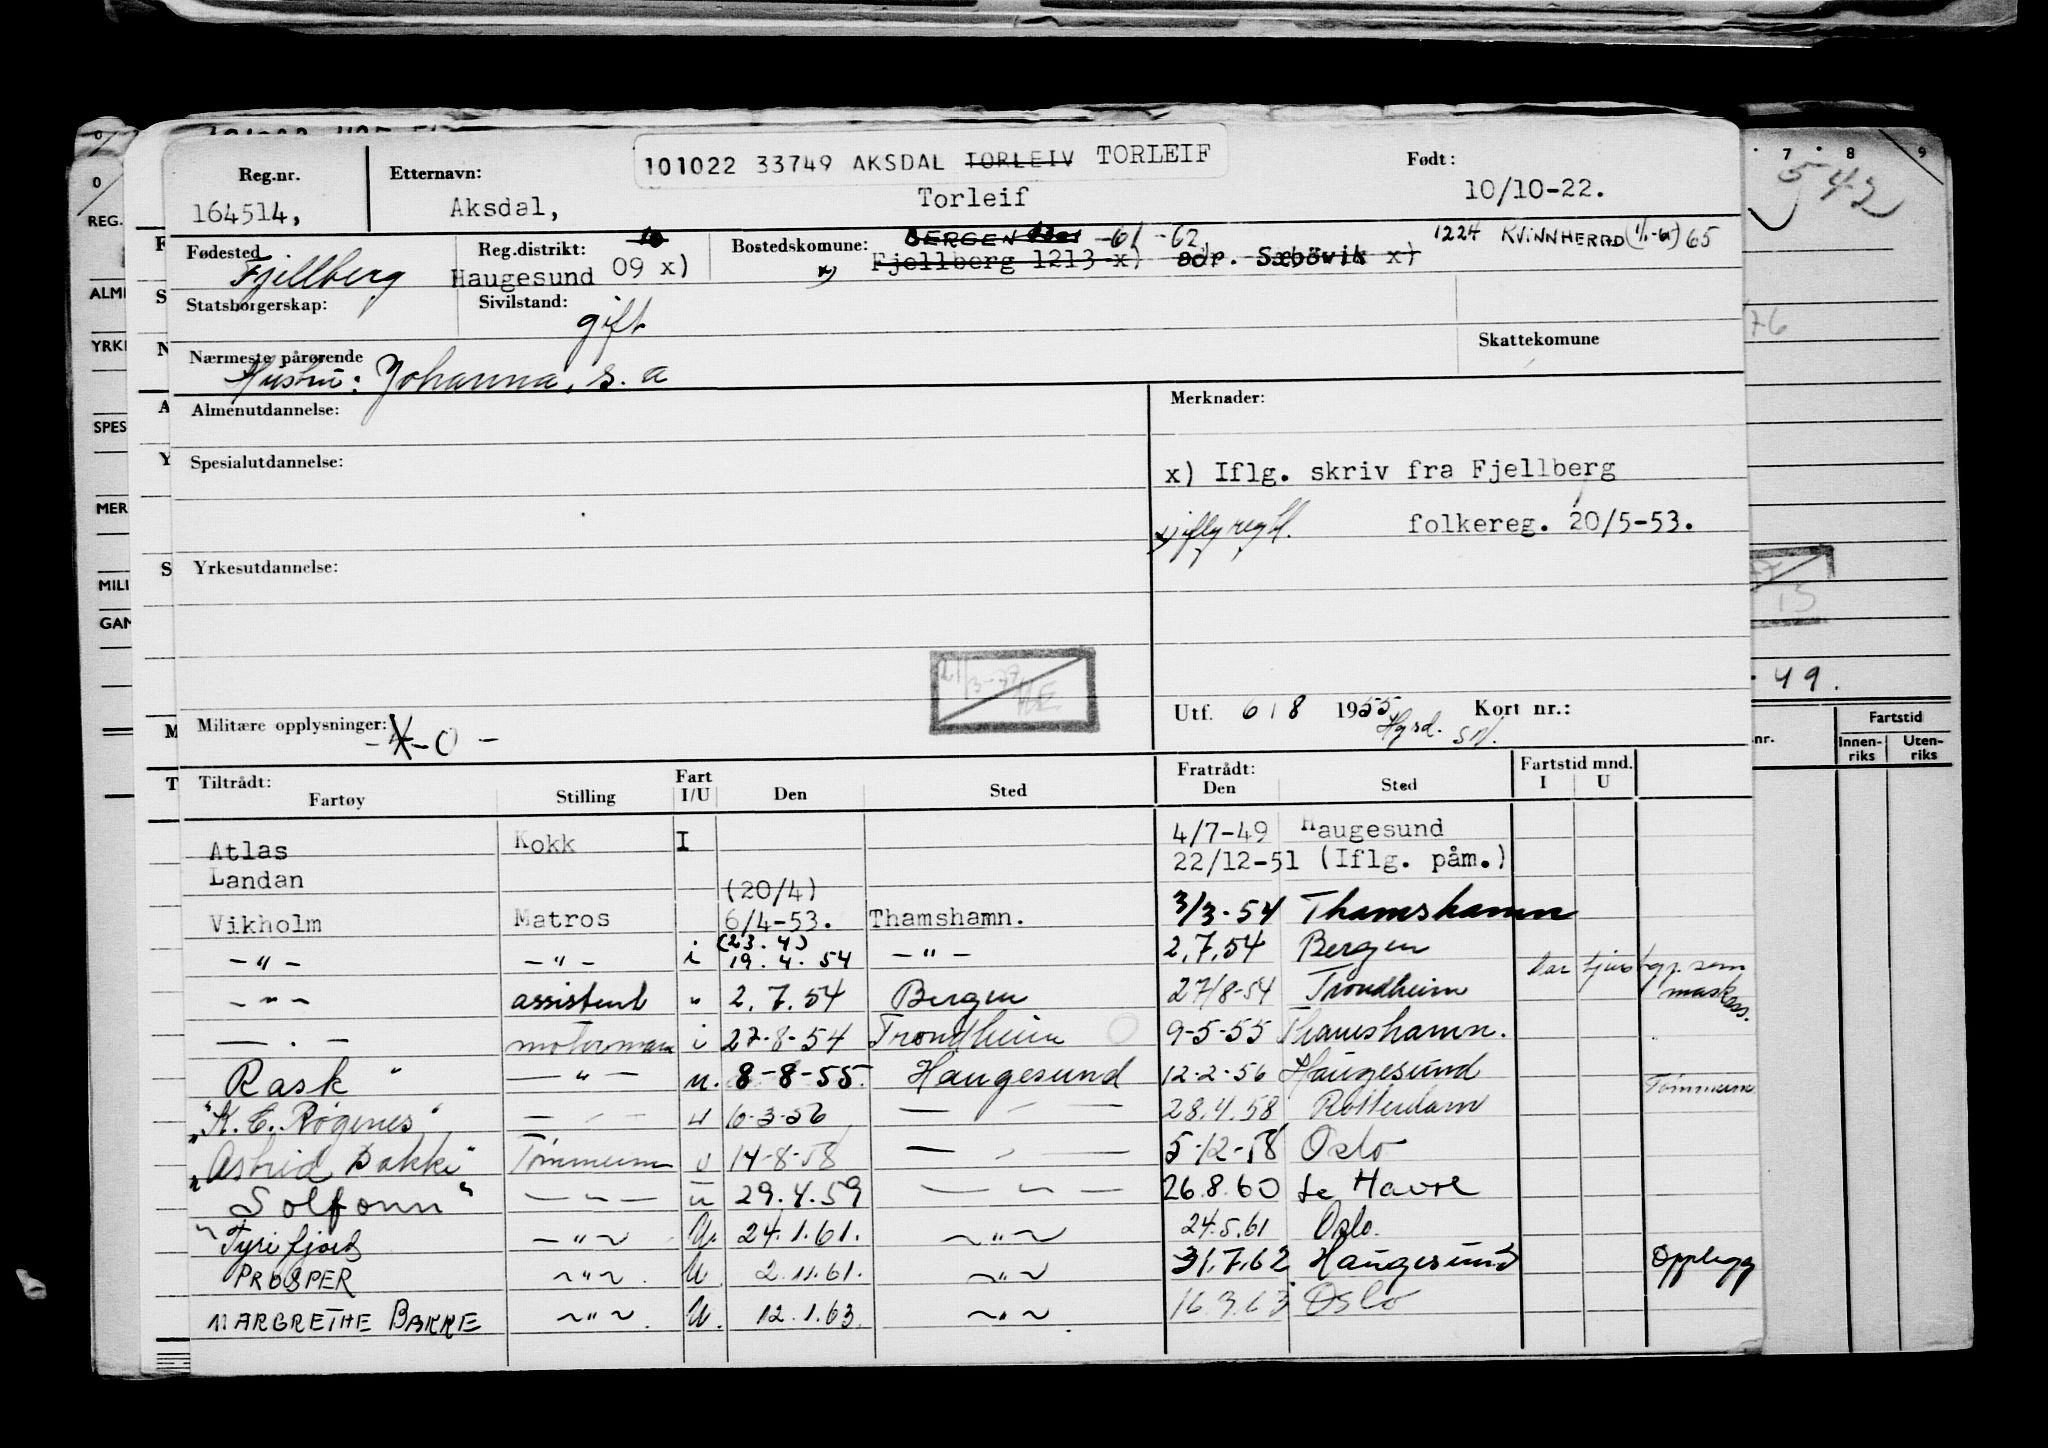 101022 33749 AKSDAL TORLEIV TORLEIF
Reg.nr. Etternavn: Født:
164514, Aksdal, Torleif 10/10-22.
Fødested Reg.distrikt: 10 Bostedskomune: BERGEN -61 -62 1224 KVINNHERAD (1/1-65) 65
Fjellberg Haugesund 09 x) x) Fjellberg 1213 x) adr. Sæbövik x)
Statsborgerskap: Sivilstand: gift
Nærmeste pårørende Skattekomune
Hustru: Johanna, s. a
Almenutdannelse: Merknader:
Spesialutdannelse: x) Iflg. skriv fra Fjellberg
folkereg. 20/5-53.
Yrkesutdannelse:
21/3-77
Militære opplysninger: -0- Utf. 6/8 1955 Kort nr.:
Hgsd.
Tiltrådt: Fart Fratrådt: Fartstid mnd.
Fartøy Stilling I/U Den Sted Den Sted I U
Atlas Kokk I 4/7-49 Haugesund
Landan 22/12-51 (Iflg. påm.)
(20/4)
Vikholm Matros 6/4-53. Thamshamn. 3/3-54 Thamshamn
(23.4)
-"- -"- i 19.4.54 -"- 2.7.54 Bergen
-"- assistent " 2.7.54 Bergen 27/8-54 Trondheim har tjus som mask ass.
-"- motormann i 27-8-54 Trondheim 9-5-55 Thamshamn.
Rask -"- u. 8-8-55. Haugesund 12-2-56 Haugesund
"K. E. Rögenes" -"- u 10-3-56 -"- 28.4.58 Rotterdam Tömmerm
"Astrid Bakke" Tömmerm u 14-8-58 -"- 5-12-58 Oslo
Solfonn" -"- u 29.4.59 -"- 26.8.60 Le Havre
"Tyrifjord -"- U. 24.1.61. -"- 24.5.61 Oslo.
PROSPER -"-. U 2.11.61. -"- 31.7.62 Haugesund Opplegg
MARGRETHE BAKKE -"-. U. 12.1.63. -"- 16.3.63 Oslo
7 8 9
REG.
ALM
YRK
SPES
MER
MILI
GAN
49.
Fartstid
Innenriks Utenriks